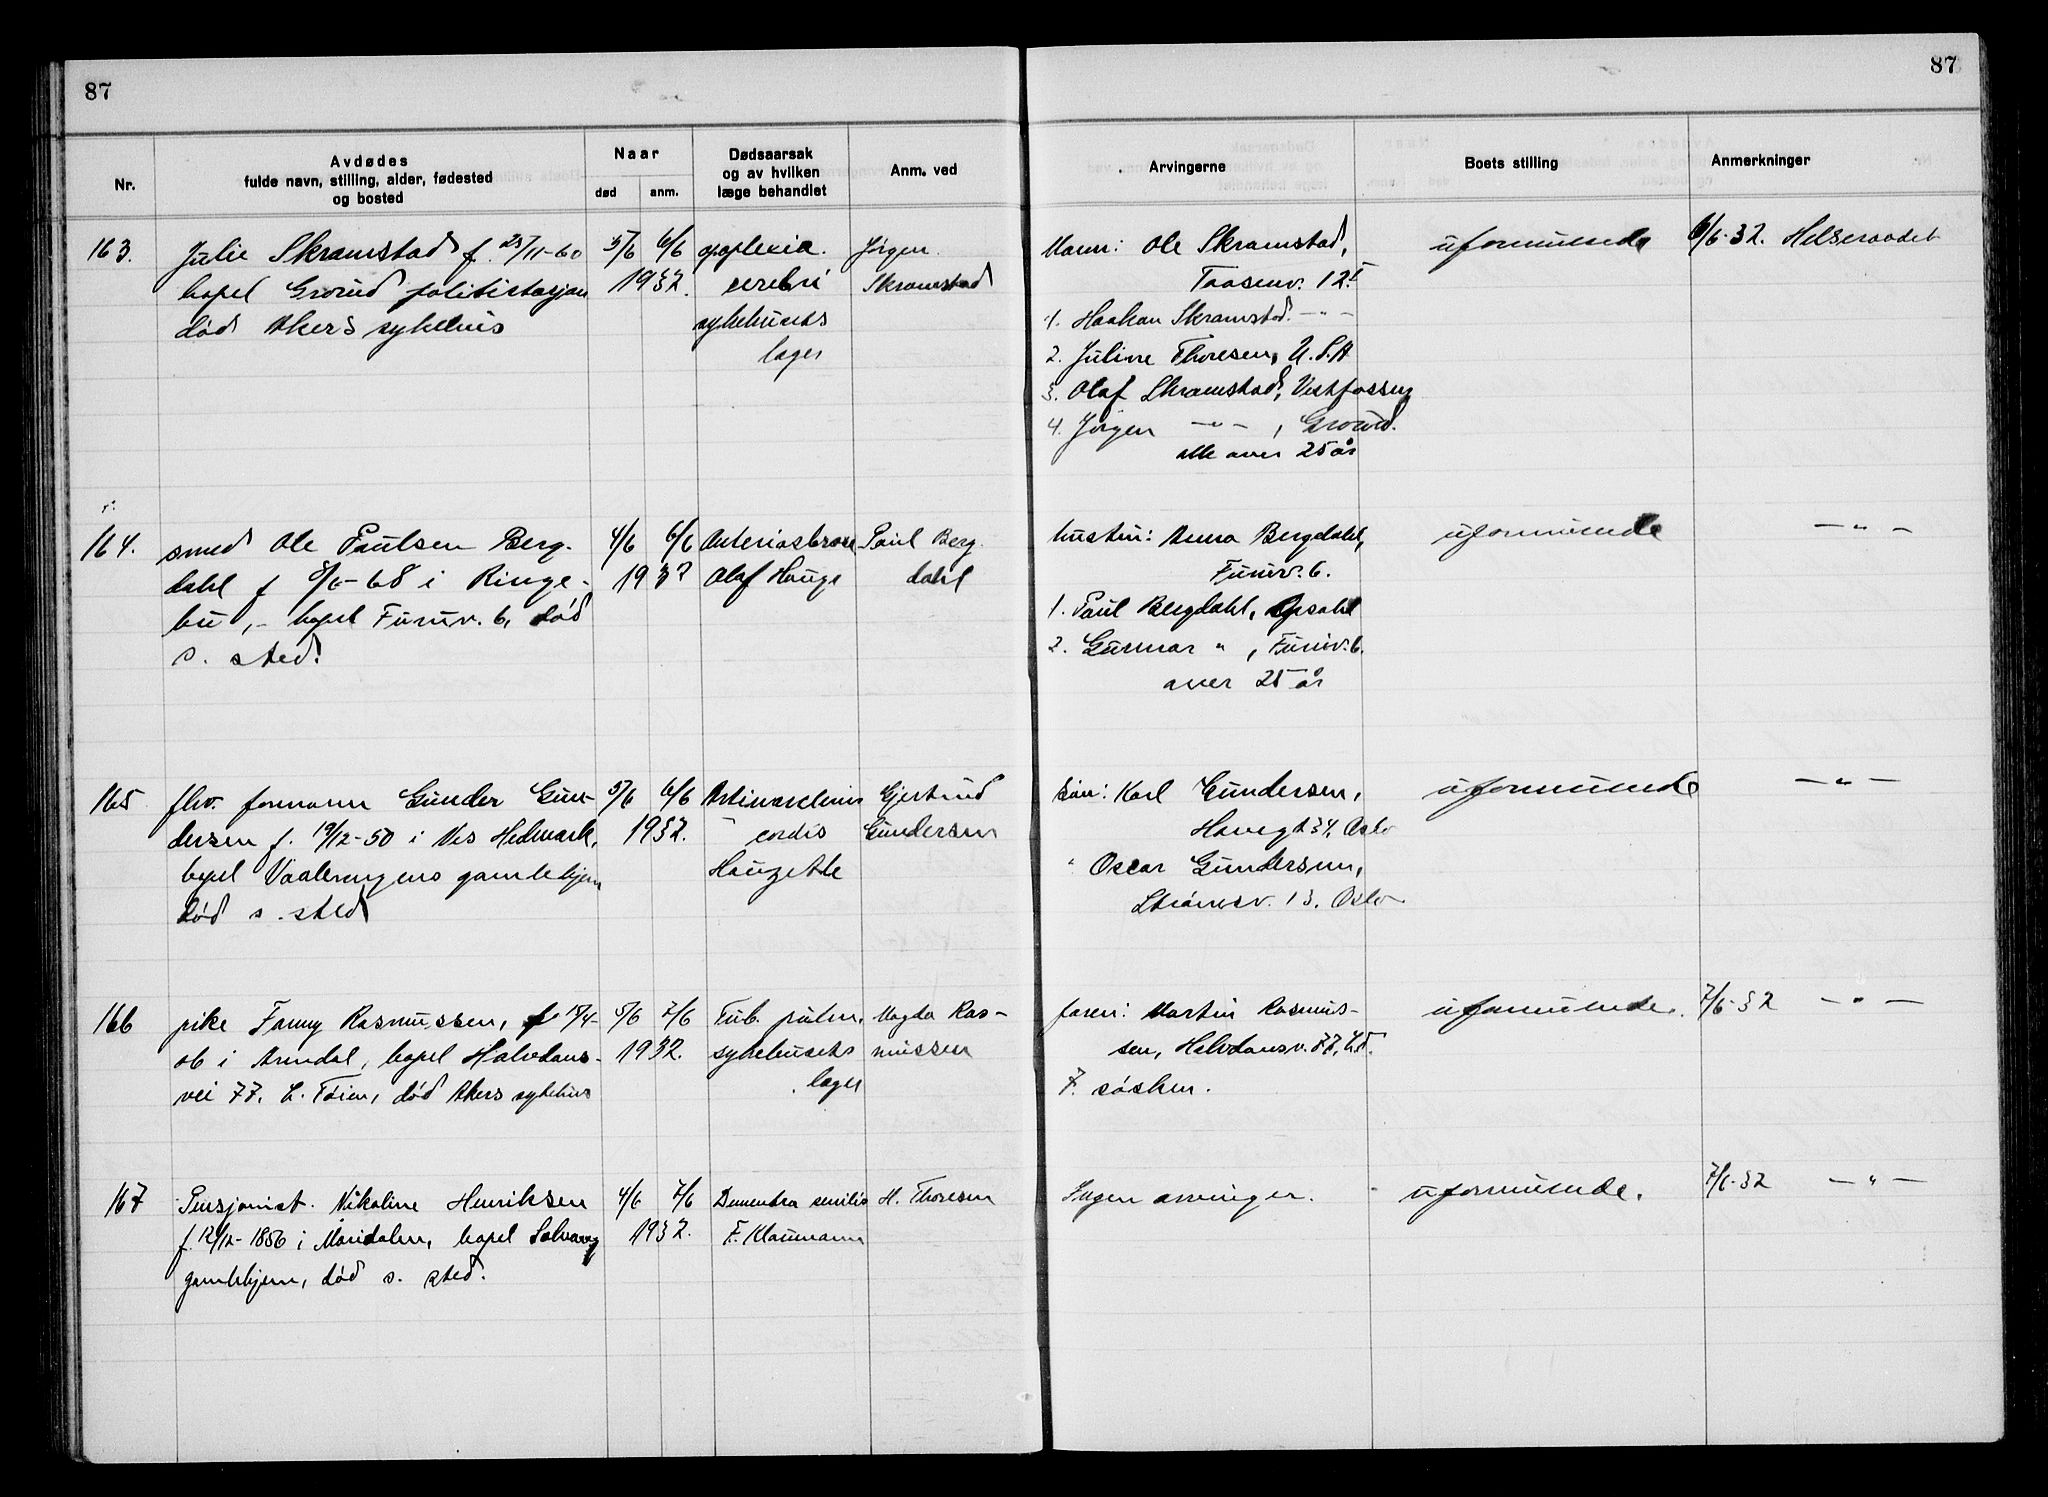 87
87
Nr.
Avdødes
fulde navn, stilling, alder, fødested
og bosted
Naar
død
anm.
Dødsaarsak
og av hvilken
læge behandlet
Anm. ved
Arvingerne
Boets stilling
Anmerkninger
163.
Julie Skramstad f. 25/11-60
bopel Grorud politistasjon
død Akers sykehus
5/6 6/6
1932.
apoplexia
cerebri
sykehusets
læger
Jörgen
Skramstad
Mann: Ole Skramstad,
Taasenv. 12 I
1. Haakon Skramstad. -"-
2. Juline Thoresen, U.S.A
3. Olaf Skramstad, Vestfossen
4. Jörgen -"-, Grorud.
alle over 25 år
uformuende
6/6-32. Helseraadet
164.
smed Ole Paulsen Berg-
dahl f 8/6-68 i Ringe-
bu, - bopel Furuv. 6, død
s. sted.
4/6 6/6
1932
Olaf Hauge
Paul Berg-
dahl
hustru: Anna Bergdahl,
Furuv. 6.
1. Paul Bergdahl, Opsahl
2. Gunnar " , Furuv. 6.
over 25 år
uformuende
- " -
165
fhv. formann Gunder Gun-
dersen f. 19/12-50 i Ves Hedmark,
bopel Vaalerengens gamlehjem
død s. sted
5/6 6/6
1932.
cordis
Gjertrud
Gundersen
Sön: Karl Gundersen,
34, Oslo
" Oscar Gundersen,
Strömsv. 13. Oslo
uformuende
- " -
166
pike Fanny Rasmussen, f 15/4-
06 i Arendal, bopel Halvdans-
vei 77. L. Töien, død Akers sykehus
5/6 7/6
1932.
Tub. pulm.
sykehusets
læger
Magda Ras-
mussen
faren: Martin Rasmus-
sen, Halvdansv. 77, L.T.
7 søsken.
uformuende.
7/6-32 - " -
167
Pensjonist. Nikoline Henriksen
f. 12/12-1856 i Maridalen, bopel Solvang
gamlehjem, død s. sted.
4/6 7/6
1932.
Dementia senilis
F. Klaumann
H. Thoresen
Ingen arvinger.
uformuende.
7/6-32 - " -